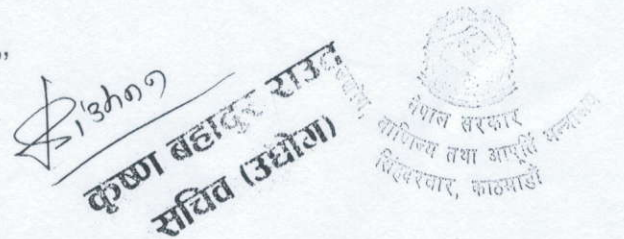 ”
कृष्ण बहादुर राउत
सचिव (उद्योग)
नेपाल सरकार
उद्योग, वाणिज्य तथा आपूर्ति मन्त्रालय
सिंहदरबार, काठमाडौं